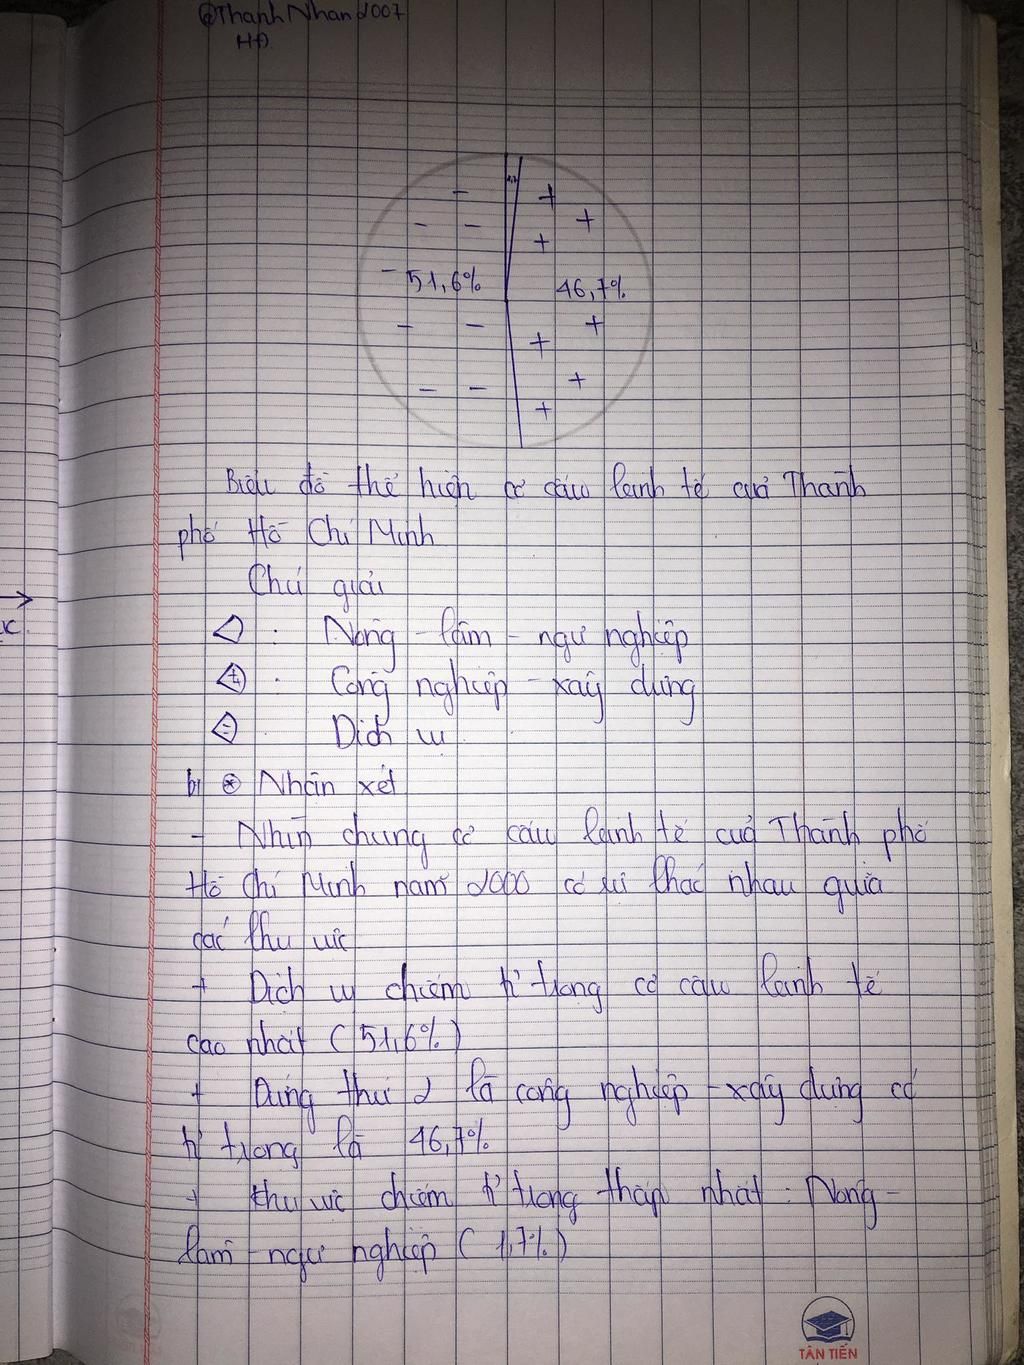 @ThanhNhan2007
HĐ
1,7
51,6%
46,7%
Biểu đồ thể hiện cơ cấu kinh tế của Thành
phố Hồ Chí Minh
Chú giải
: Nông - lâm - ngư nghiệp
+ : Công nghiệp - xây dựng
- : Dịch vụ
b) * Nhận xét
- Nhìn chung cơ cấu kinh tế của Thành phố
Hồ Chí Minh năm 2000 có sự khác nhau giữa
các khu vực
+ Dịch vụ chiếm tỉ trọng cơ cấu kinh tế
cao nhất (51,6%)
+ Đứng thứ 2 là công nghiệp - xây dựng có
tỉ trọng là 46,7%
+ Khu vực chiếm tỉ trọng thấp nhất : Nông -
lâm - ngư nghiệp (1,7%)
TÂN TIẾN